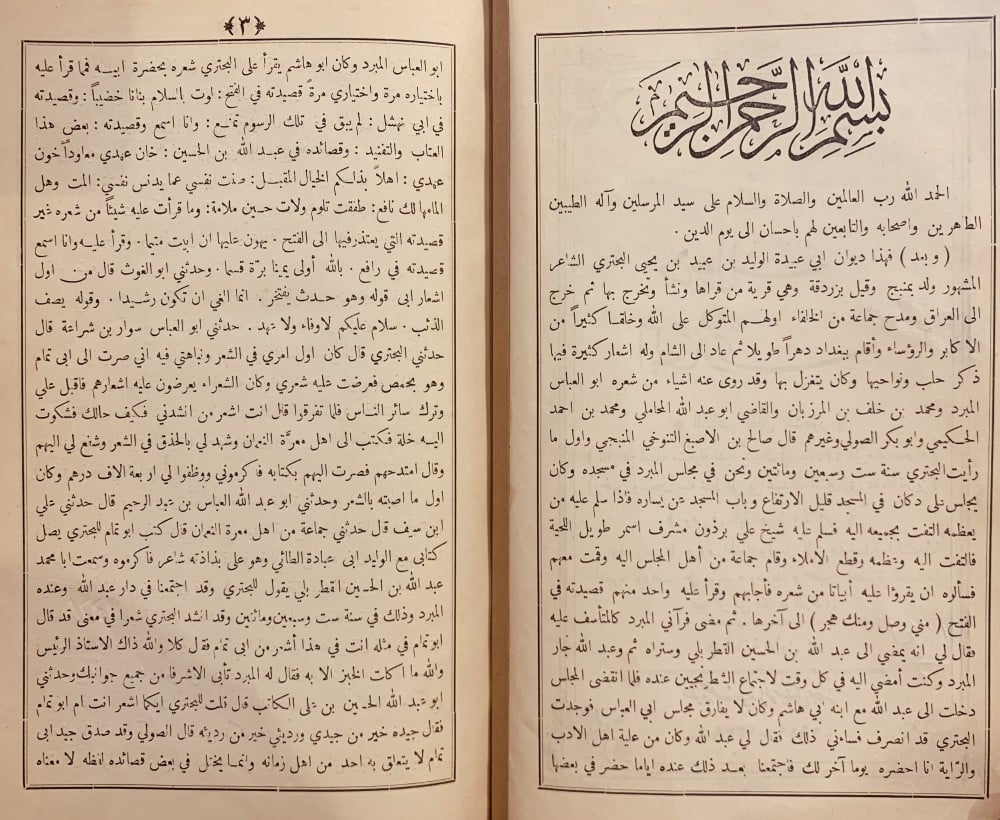 بسم الله الرحمن الرحيم
الحمد الله رب العالمين والصلاة والسلام على سيد المرسلين وآله الطيبين
الطاهرين واصحابه والتابعين لهم باحسان الى يوم الدين .
( وبعد ) فهذا ديوان ابي عبيدة الوليد بن عبيد بن يحيى البحتري الشاعر
المشهور ولد بمنبج وقيل بزردقة وهي قرية من قراها ونشأ وتخرج بها ثم خرج
الى العراق ومدح جماعة من الخلفاء اولهم المتوكل على الله وخلقا كثيراً من
الاكابر والرؤساء وأقام ببغداد دهراً طويلا ثم عاد الى الشام وله اشعار كثيرة فيها
ذكر حلب ونواحيها وكان يتغزل بها وقد روى عنه اشياء من شعره ابو العباس
المبرد ومحمد بن خلف بن المرزبان والقاضي ابو عبد الله المحاملي ومحمد بن احمد
الحكيمي وابو بكر الصولي وغيرهم قال صالح بن الاصبغ التنوخي المنبجي واول ما
رأيت البحتري سنة ست وسبعين ومائتين ونحن في مجلس المبرد في مسجده وكان
يجلس على دكان في المسجد قليل الارتفاع وباب المسجد عن يساره فاذا سلم عليه من
يعظمه التفت بجميعه اليه فسلم عليه شيخ على برذون مشرف اسمر طويل اللحية
فالتفت اليه وعظمه وقطع الاملاء وقام جماعة من أهل المجلس اليه وقمت معهم
فسألوه ان يقرؤا عليه أبياتا من شعره فأجابهم وقرأ عليه واحد منهم قصيدته في
الفتح ( مني وصل ومنك هجر ) الى آخرها . ثم مضى فرآني المبرد كالمتأسف عليه
فقال لي انه يمضي الى عبد الله بن الحسين القطربلي وستراه ثم وعبد الله جار
المبرد وكنت أمضي اليه في كل وقت لاجتماع الشطرنجيين عنده فلما انقضى المجلس
دخلت الى عبد الله مع ابنه ابي هاشم وكان لا يفارق مجلس ابي العباس فوجدت
البحتري قد انصرف فساءني ذلك فقال لي عبد الله وكان من علية اهل الادب
والرّاية انا احضره يوما آخر لك فاجتمعنا بعد ذلك عنده اياما حضر في بعضها
﴿٣﴾
ابو العباس المبرد وكان ابو هاشم يقرأ على البحتري شعره بحضرة ابيه فما قرأ عليه
باختياره مرة واختياري مرة قصيدته في الفتح : لوت بالسلام بنانا خضيباً : وقصيدته
في ابي نهشل : لم يبق في تلك الرسوم تمنع : وانا اسمع وقصيدته : بعض هذا
العتاب والتفنيد : وقصائده في عبد الله بن الحسين : خان عهدي معاوداً خون
عهدي : اهلاً بذلكم الخيال المقبل : صنت نفسي عما يدنس نفسي : المت وهل
المامها لك نافع : طفقت تلوم ولات حين ملامة : وما قرأت عليه شيئاً من شعره غير
قصيدته التي يعتذر فيها الى الفتح . يهون عليها ان ابيت متيما . وقرأ عليه وانا اسمع
قصيدته في رافع . بالله أولى يمينا برّة قسما . وحدثني ابو الغوث قال من اول
اشعار ابى قوله وهو حدث يفتخر . انما الغي ان تكون رشيدا . وقوله يصف
الذئب . سلام عليكم لا وفاء ولا عهد . حدثني ابو العباس سوار بن شراعة قال
حدثني البحتري قال كان اول امري في الشعر ونباهتي فيه اني صرت الى ابى تمام
وهو بحمص فعرضت عليه شعري وكان الشعراء يعرضون عليه اشعارهم فاقبل علي
وترك سائر الناس فلما تفرقوا قال انت اشعر من انشدني فكيف حالك فشكوت
اليه خلة فكتب الى اهل معرّة النعمان وشهد لي بالحذق في الشعر وشفع لي اليهم
وقال امتدحهم فصرت اليهم بكتابه فاكرموني ووظفوا لي اربعة الاف درهم وكان
اول ما اصبته بالشعر وحدثني ابو عبد الله العباس بن عبد الرحيم قال حدثني علي
ابن سيف قال حدثني جماعة من اهل معرة النعمان قال كتب ابو تمام للبحتري يصل
كتابي مع الوليد ابى عبادة الطائي وهو على بذاذته شاعر فاكرموه وسمعت ابا محمد
عبد الله بن الحسين القطربلي يقول للبحتري وقد اجتمعنا في دار عبد الله وعنده
المبرد وذلك في سنة ست وسبعين ومائتين وقد انشد البحتري شعرا في معنى قد قال
ابو تمام في مثله انت في هذا أشعر من ابى تمام فقال كلا والله ذاك الاستاذ الرئيس
والله ما اكلت الخبز الا به فقال له المبرد تأبى الا شرفا من جميع جوانبك وحدثني
ابو عبد الله الحسين بن علي الكاتب قال قلت للبحتري ايكما اشعر انت ام ابو تمام
فقال جيده خير من جيدي ورديئي خير من رديئه قال الصولي وقد صدق جيد ابى
تمام لا يتعلق به احد من اهل زمانه وانما يختل في بعض قصائده لفظه لا معناه